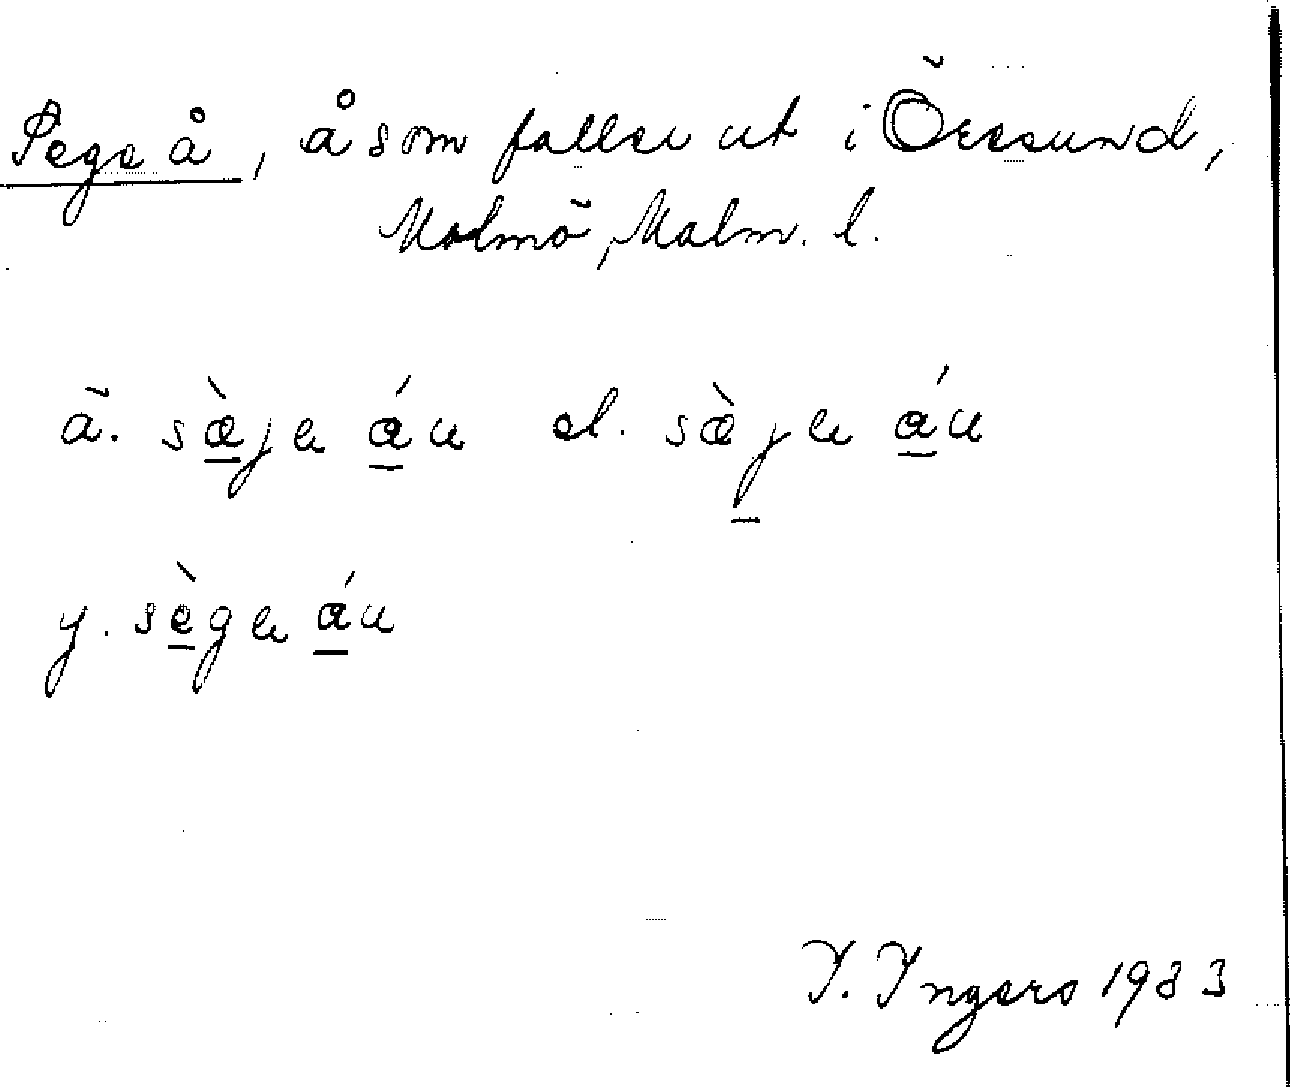 Sege å, å som faller ut i Öresund,
Malmö, Malm. l.
ä. sæ̱̀je á̱u d. sæ̀j̱e á̱u
y. sè̱ge á̱u
I. Ingers 1933